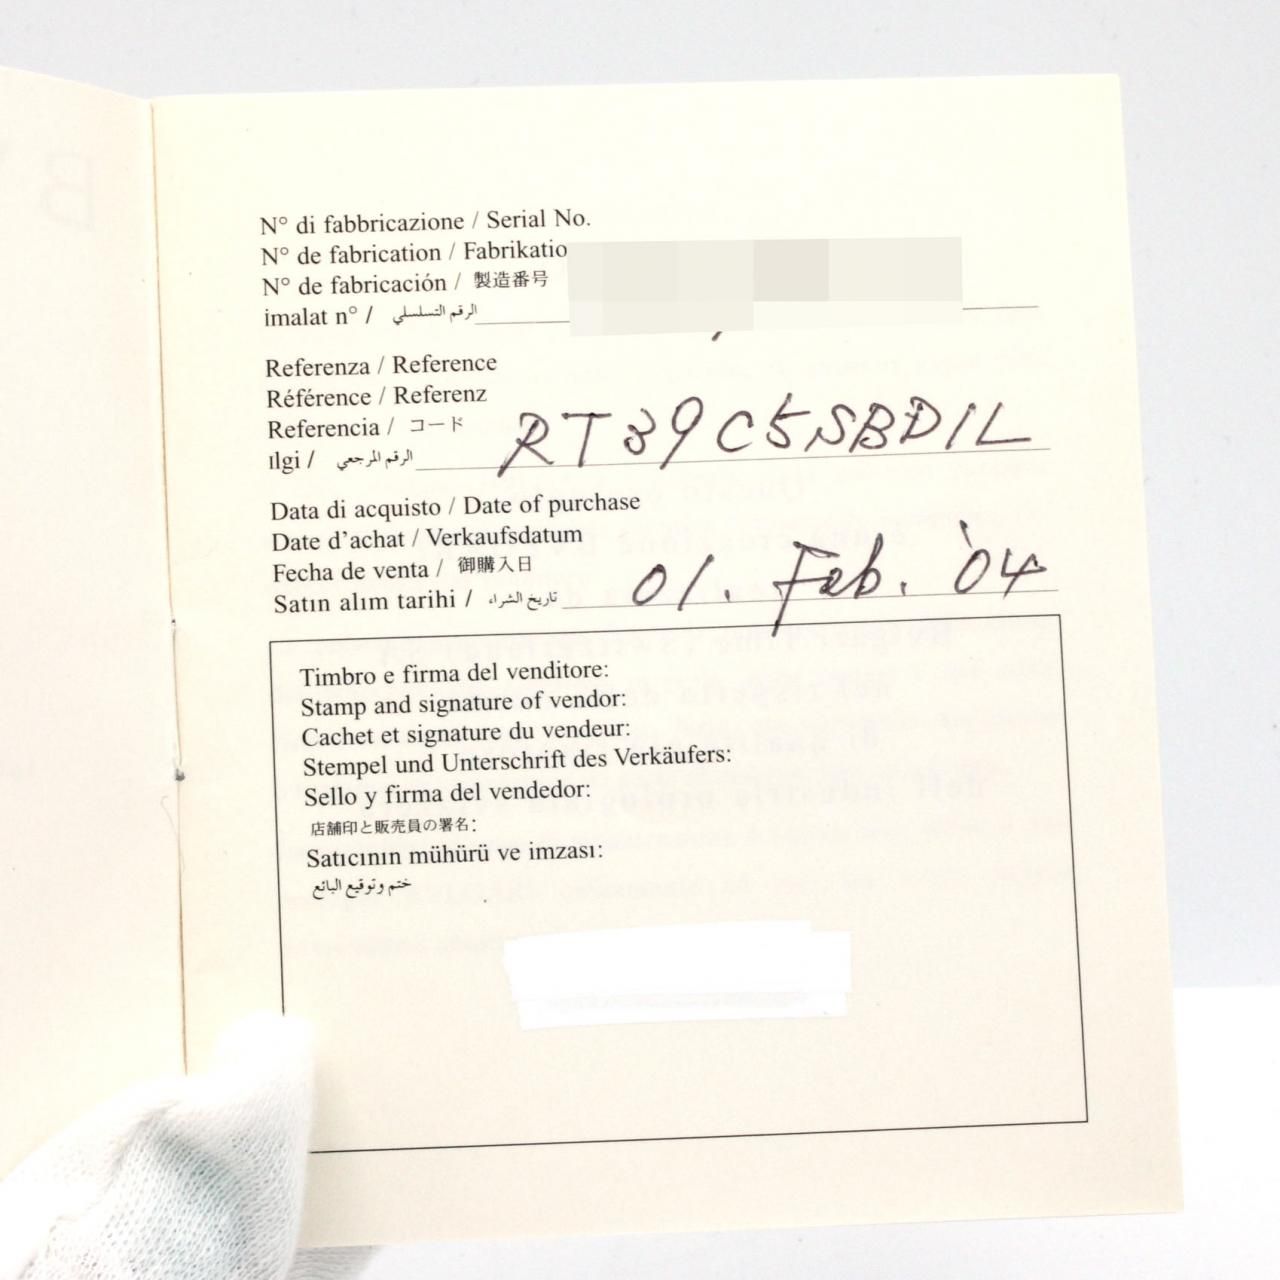 N° di fabbricazione / Serial No.
N° de fabrication / Fabrikatio
N° de fabricación / 製造番号
imalat n° / الرقم التسلسلي
Referenza / Reference
Référence / Referenz
Referencia / コード
Ilgi / الرقم المرجعي RT39C5SBD1L
Data di acquisto / Date of purchase
Date d'achat / Verkaufsdatum
Fecha de venta / 御購入日
Satın alım tarihi / تاريخ الشراء 01. Feb. '04
Timbro e firma del venditore:
Stamp and signature of vendor:
Cachet et signature du vendeur:
Stempel und Unterschrift des Verkäufers:
Sello y firma del vendedor:
店舗印と販売員の署名:
Satıcının mühürü ve imzası:
ختم وتوقيع البائع